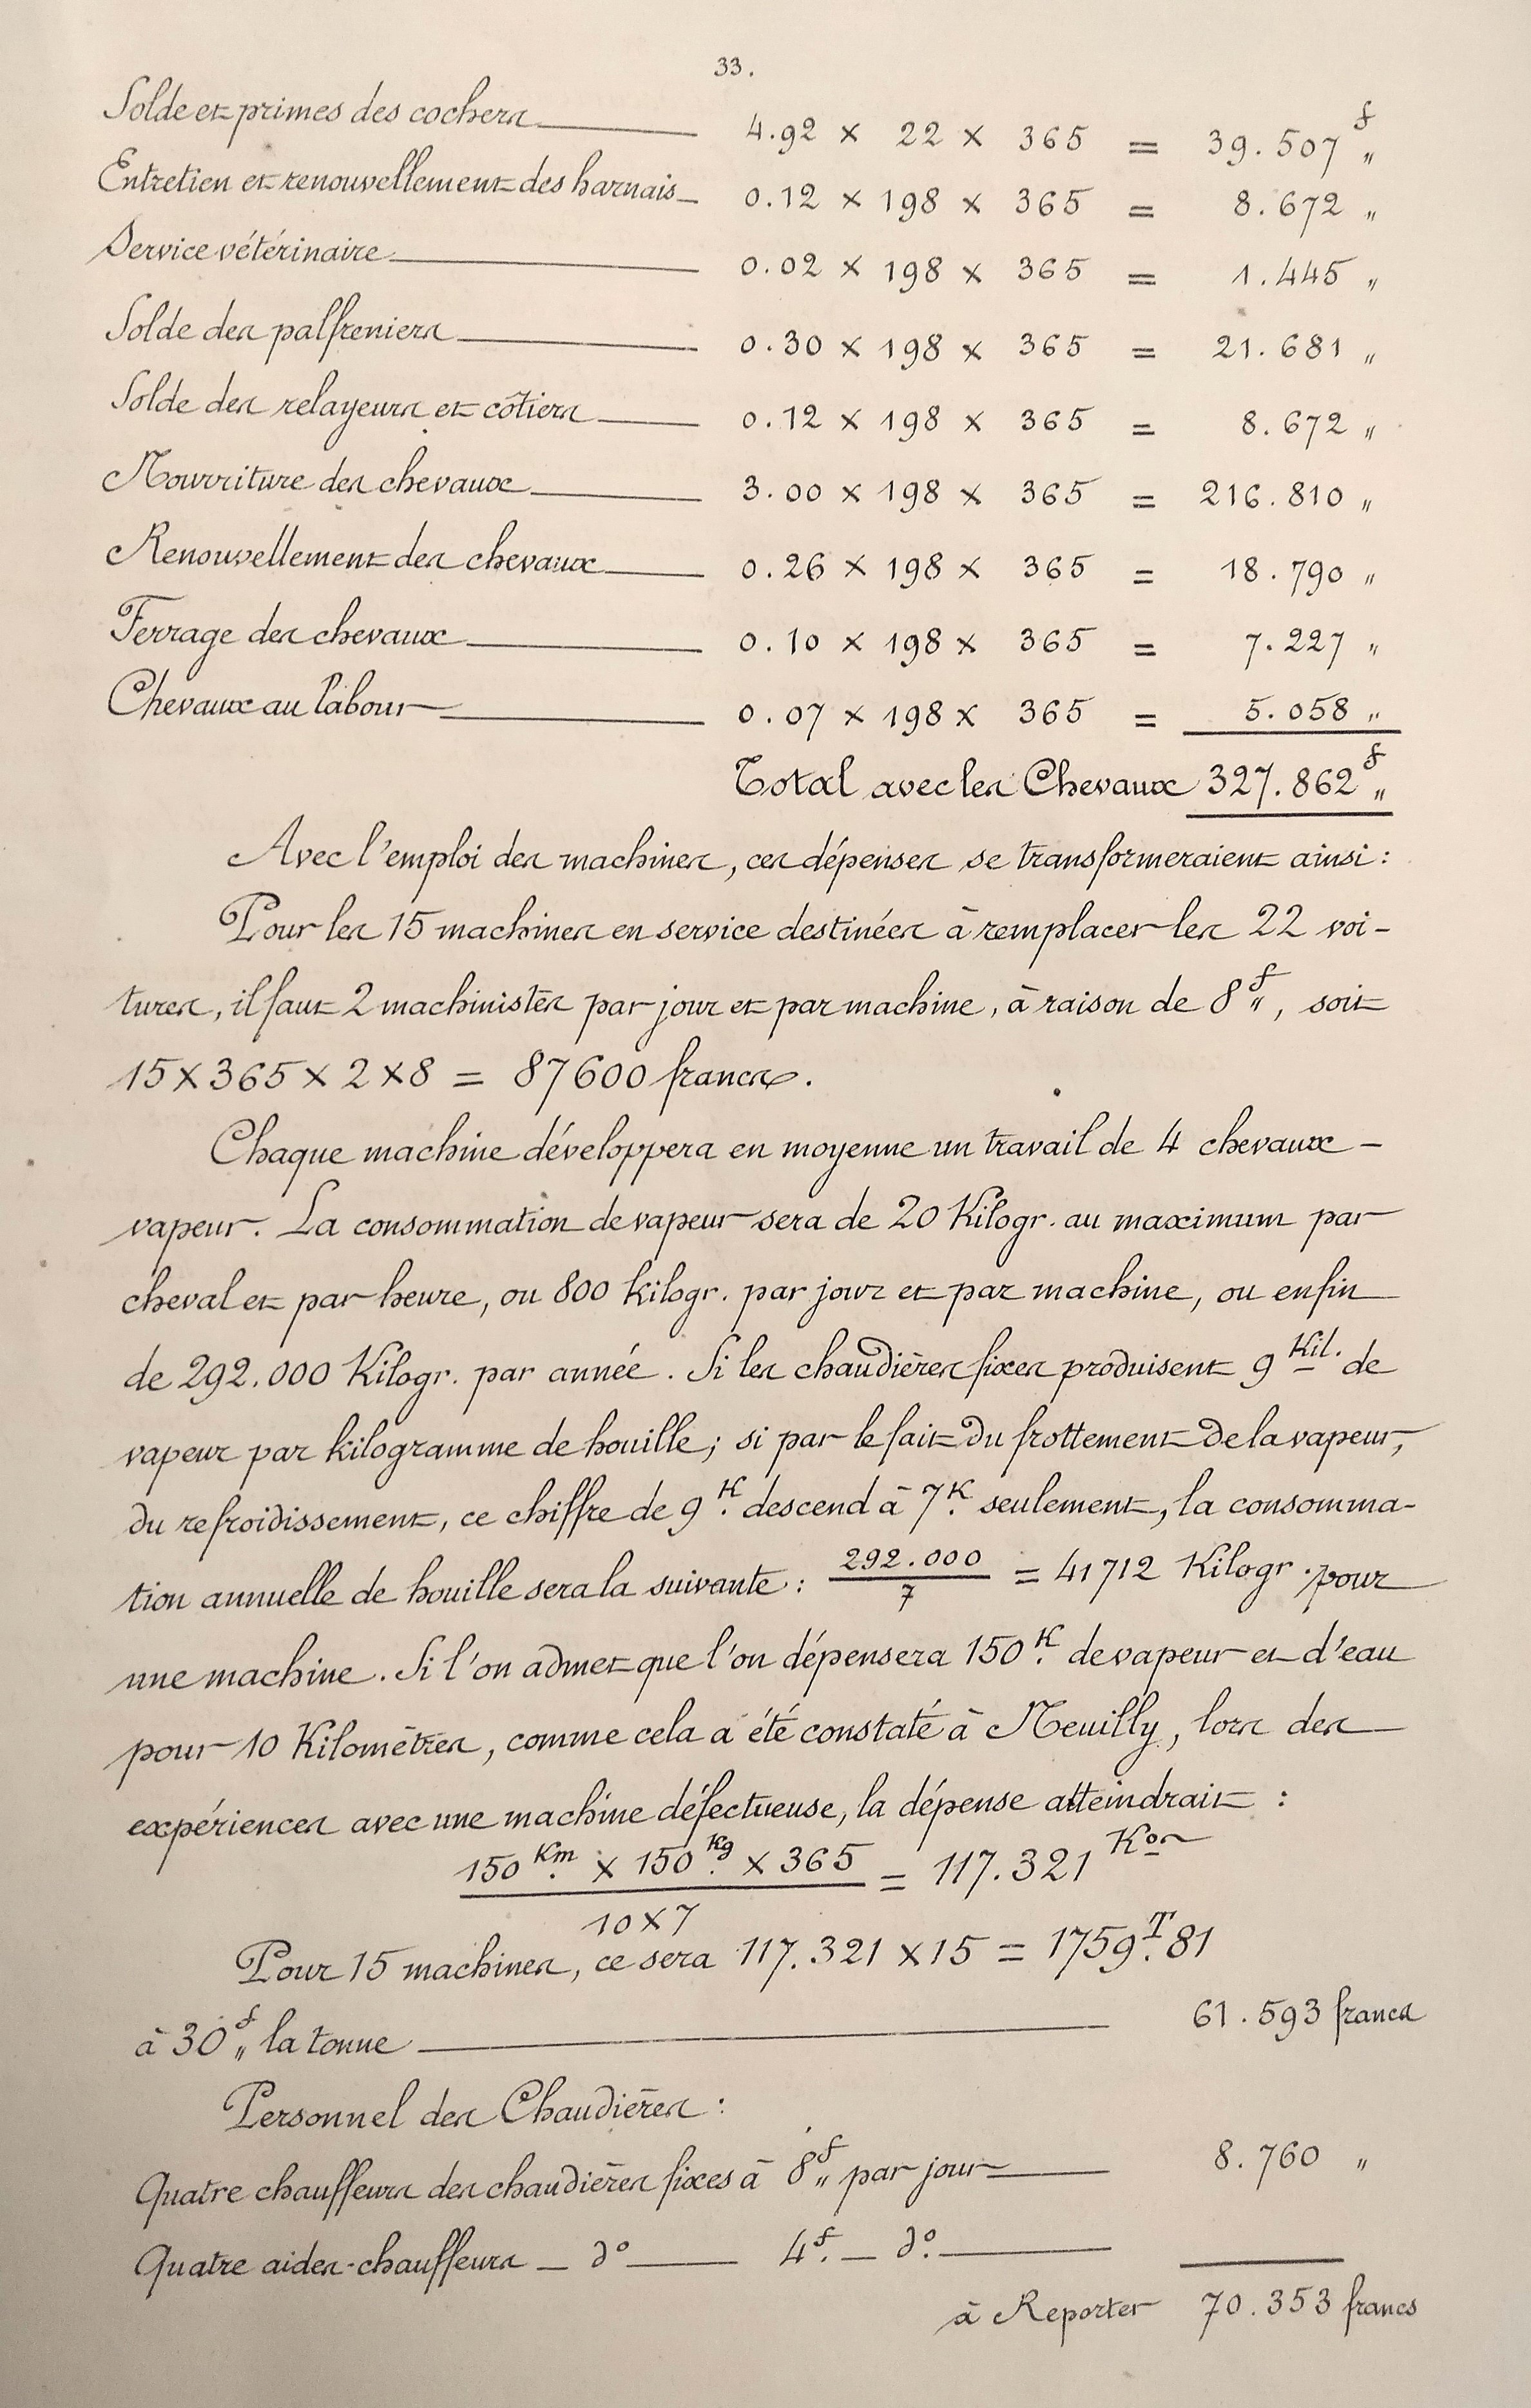 33.
Solde et primes des cochers 4.92 × 22 × 365 = 39.507 f "
Entretien et renouvellement des harnais 0.12 × 198 × 365 = 8.672 "
Service vétérinaire 0.02 × 198 × 365 = 1.445 "
Solde des palfreniers 0.30 × 198 × 365 = 21.681 "
Solde des relayeurs et côtiers 0.12 × 198 × 365 = 8.672 "
Nourriture des chevaux 3.00 × 198 × 365 = 216.810 "
Renouvellement des chevaux 0.26 × 198 × 365 = 18.790 "
Ferrage des chevaux 0.10 × 198 × 365 = 7.227 "
Chevaux au labour 0.07 × 198 × 365 = 5.058 "
Total avec les Chevaux 327.862 f "
Avec l'emploi des machines, ces dépenses se transformeraient ainsi :
Pour les 15 machines en service destinées à remplacer les 22 voi-
tures, il faut 2 machinistes par jour et par machine, à raison de 8 f ", soit
15 × 365 × 2 × 8 = 87600 francs.
Chaque machine développera en moyenne un travail de 4 chevaux -
vapeur. La consommation de vapeur sera de 20 Kilogr. au maximum par
cheval et par heure, ou 800 kilogr. par jour et par machine, ou enfin
de 292.000 Kilogr. par année. Si les chaudières fixes produisent 9 Kil. de
vapeur par kilogramme de houille ; si par le fait du frottement de la vapeur,
du refroidissement, ce chiffre de 9 K. descend à 7 K. seulement, la consomma-
tion annuelle de houille sera la suivante : 292.000 / 7 = 41712 Kilogr. pour
une machine. Si l'on admet que l'on dépensera 150 K. de vapeur et d'eau
pour 10 Kilomètres, comme cela a été constaté à Neuilly, lors des
expériences avec une machine défectueuse, la dépense atteindrait :
150 Km. × 150 Kg. × 365 / 10 × 7 = 117.321 Kos
Pour 15 machines, ce sera 117.321 × 15 = 1759 T. 81
à 30 f " la tonne 61.593 francs
Personnel des Chaudières :
Quatre chauffeurs des chaudières fixes à 8 f " par jour 8.760 "
Quatre aides-chauffeurs — do — 4 f. — do.
à Reporter 70.353 francs